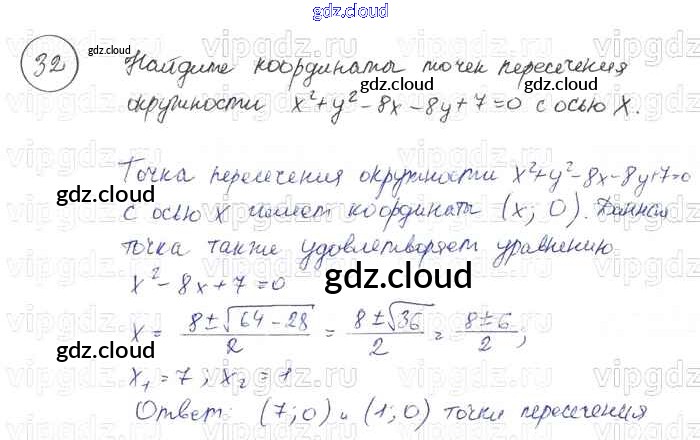 gdz.cloud
32 gdz.cloud Найдите координаты точек пересечения
окружности x²+y²-8x-8y+7=0 с осью X.
gdz.cloud gdz.cloud
Точка пересечения окружности x²+y²-8x-8y+7=0
gdz.cloud
с осью X имеет координаты (x; 0). Данная
точка также удовлетворяет уравнению
x²-8x+7=0 gdz.cloud
x = 8±√64-28 / 2 = 8±√36 / 2 = 8±6 / 2;
gdz.cloud gdz.cloud
x₁=7; x₂=1
Ответ: (7;0) и (1;0) точки пересечения